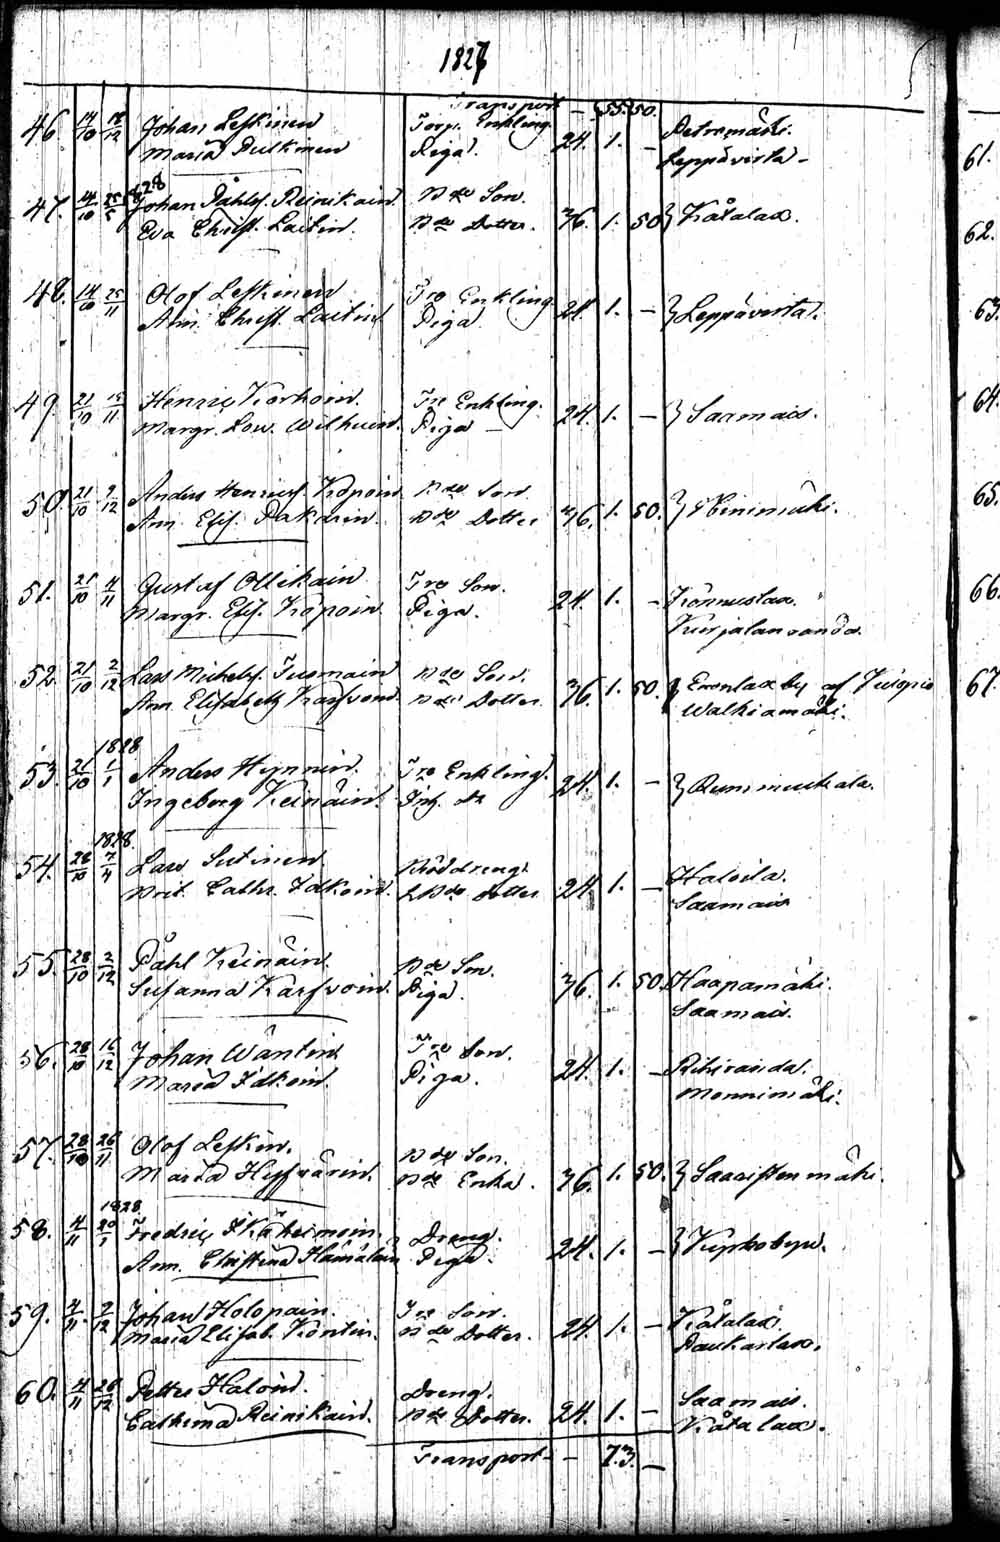 1827
Transport - 55. 50.
46. 14/10 12/12 Johan Leskinen Torp. Enkling Petromäki.
Maria Pulkinen Piga. 24. 1. - Leppävirta -
47. 14/10 1828 Johan Påhls. Reinikain. Bde Son.
Eva Christ. Laitin. Bde Dotter. 36. 1. 50. } Kåtalax.
48. 14/10 25/11 Olof Leskinen Tre Enkling
Ann. Christ. Laitin. Piga 24. 1. - } Leppävirta.
49. 21/10 15/11 Henric Korhoin. Tre Enkling.
Margr. Lov. Wilhuin. Piga - 24. 1. - } Saamais.
50. 21/10 9/12 Anders Henrics. Kopoin. Bde Son
Ann. Elis. Pakarin. Bde Dotter 36. 1. 50. } Niinimäki.
51. 21/10 4/11 Gustaf Ollikain Tre Son. Könnuslax.
Margr. Elis. Kopoin. Piga. 24. 1. - Kurjalanranda.
52. 21/10 2/12 Lars Michels. Tuomain Bde Son. Enonlax by af Kuopio
Ann Elisabeth Karfvoin. Bde Dotter. 36. 1. 50. Walkiamäki.
1828
53. 21/10 1/1 Anders Hynnin. Tre Enkling.
Ingeborg Keinäin. Inh. Dr 24. 1. - } Rummukala.
1828.
54. 28/10 7/4 Lars Sutinen. Halola.
Brit. Cathr. Idkoin. Dotter 24. 1. - Saamais
55. 28/10 2/12 Påhl Keinäin. Bde Son. Haapamäki.
Susanna Karfvoin. Piga. 36. 1. 50. Saamais.
56. 28/10 16/12 Johan Wäntin. Tre Son. Rihiranda.
Maria Idkoin. Piga. 24. 1. - Monnimäki.
57. 28/10 26/11 Olof Leskin. Bde Son.
Maria Hyfvärin. Bde Enka. 36. 1. 50. } Saaristenmäki.
1828
58. 4/11 20/1 Fredric Käheimoin. Dreng.
Ann. Christina Hämäläin Piga. 24. 1. - }
59. 4/11 2/12 Johan Holopain. Tre Son. Kåtalax.
Maria Elisab. Kontin. Bde Dotter. 24. 1. - Paukarlax.
60. 4/11 26/12 Petter Haloin. Dreng. Saamais.
Cathrina Reinikain. Bde Dotter. 24. 1. - Kåtalax.
Transport - 73. -
61.
62.
63.
64.
65.
66.
67.